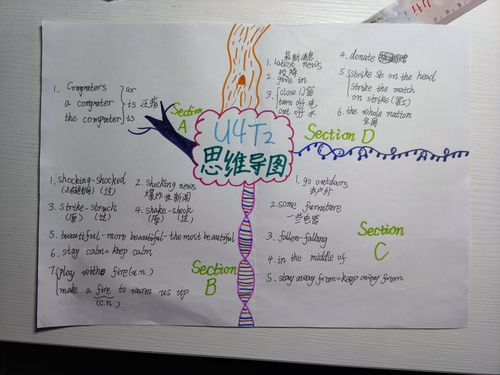 U4T2
思维导图
Section
A
1. Computers are
a computer is 泛指
the computer is
Section D
最新消息
1. latest news
投降
2. give in
3. close 门窗
turn off 电
out 水
4. donate
5. strike sb on the head
strike the match
on strike (罢工)
6. the whole nation
全国
Section
B
1. shocking-shocked
(过)
2. shocking news
爆炸性新闻
3. strike-struck
(原) (过)
4. shake-shook
(原) (过)
5. beautiful-more beautiful-the most beautiful
6. stay calm=keep calm
7. play with fire(u.n.)
make a fire to warm us up
(c.n.)
Section
C
1. go outdoors
去户外
2. some furniture
一些家具
3. fallen-falling
4. in the middle of
5. stay away from=keep away from